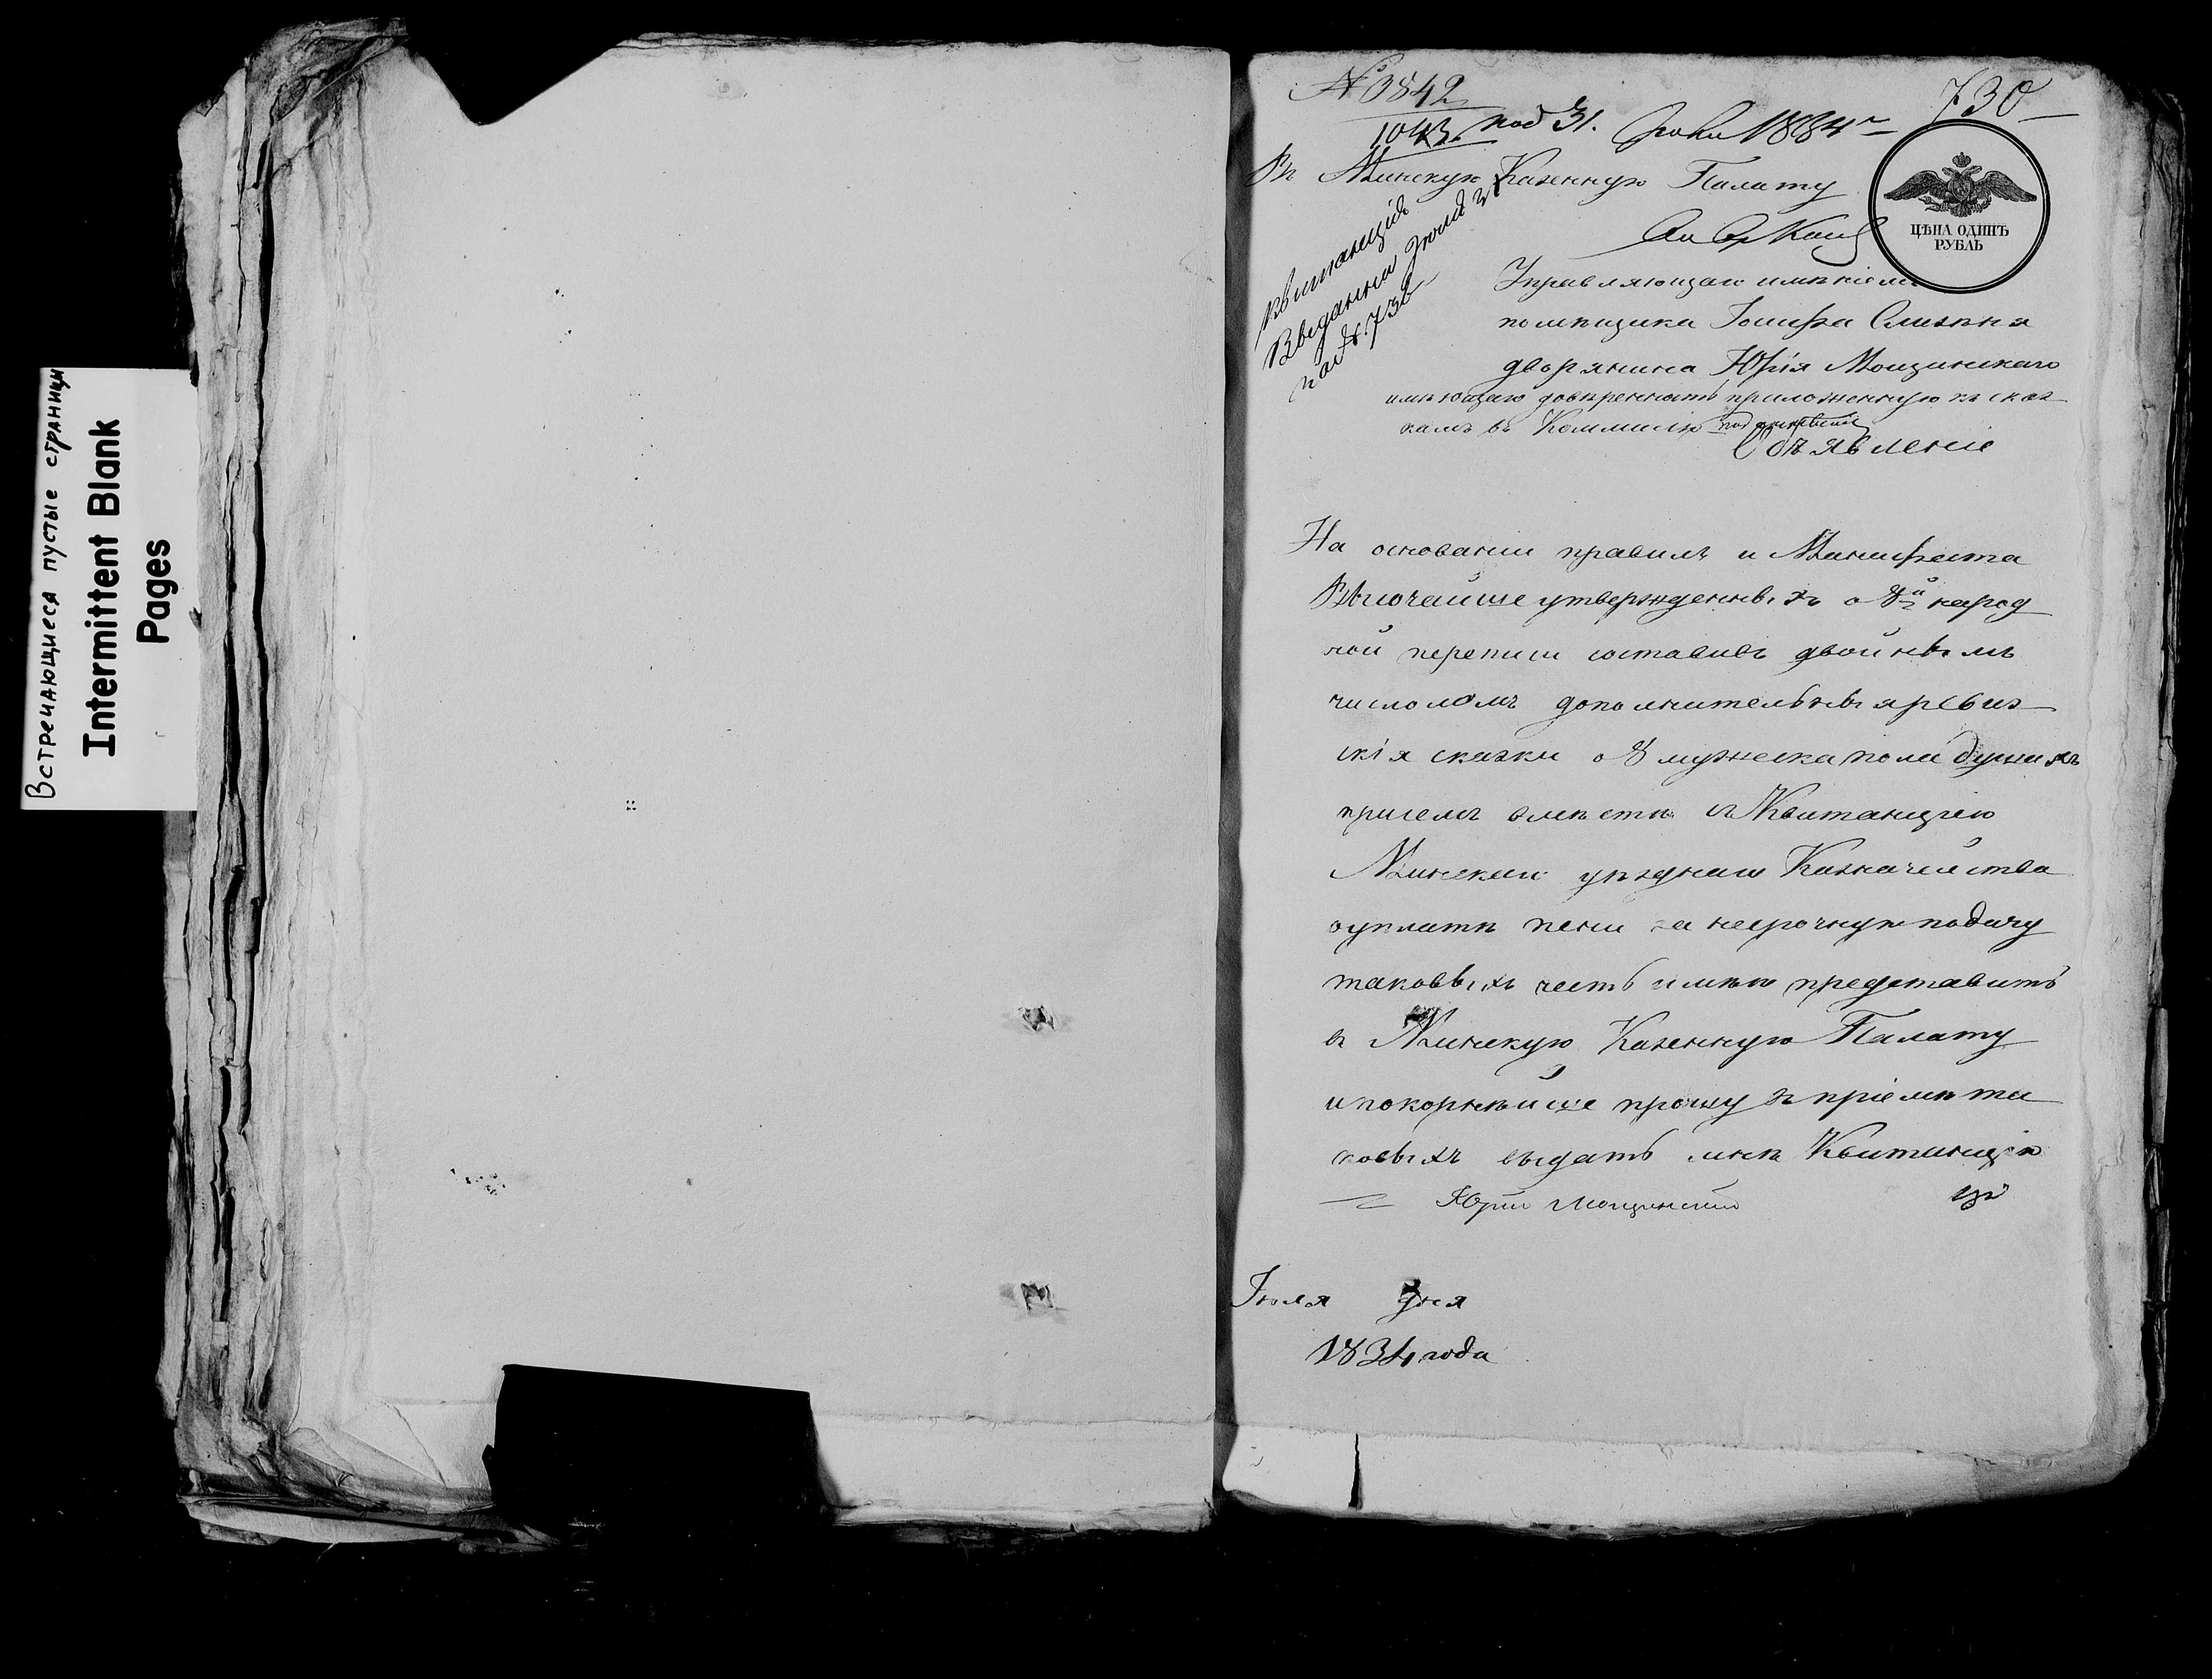 Встречающиеся пустые страницы
Intermittent Blank
Pages
№ 3842
1043. под 31. 1834 г
730
Въ Минскую Казенную Палату
ЦѢНА ОДИНЪ
РУБЛЬ
Квитанція
Выданна Іюля 31
под №. 730
Управляющаго имѣніемъ
помѣщика Іосифа Слизня
дворянина Юрія Мощинскаго
имѣющаго довѣренность приложенную къ сказ
камъ въ Коммисію под
Объявленіе
На основаніи правилъ и Манифеста
Высочайше утвержденныхъ о 8й народ
ной переписи составивъ двойнымъ
числомомъ дополнительныя ревиз
скія сказки о 8 мужеска пола душахъ
присемъ вмѣстѣ съ Квитанціею
Минскаго уѣзднаго Казначейства
о уплатѣ пени за несрочную подачу
таковыхъ честь имѣю представить
въ Минскую Казенную Палату
и покорнѣйше прошу въ пріемѣ та
ковыхъ выдать мнѣ Квитанцію
Юрій Мощинскій
Іюля 3 дня
1834 года